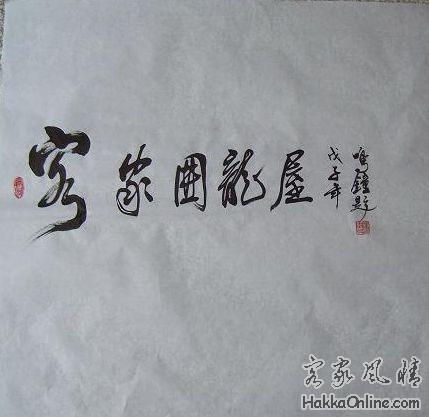 客家囲龍屋
戊子年
鸣鐘題
客家风情
HakkaOnline.com